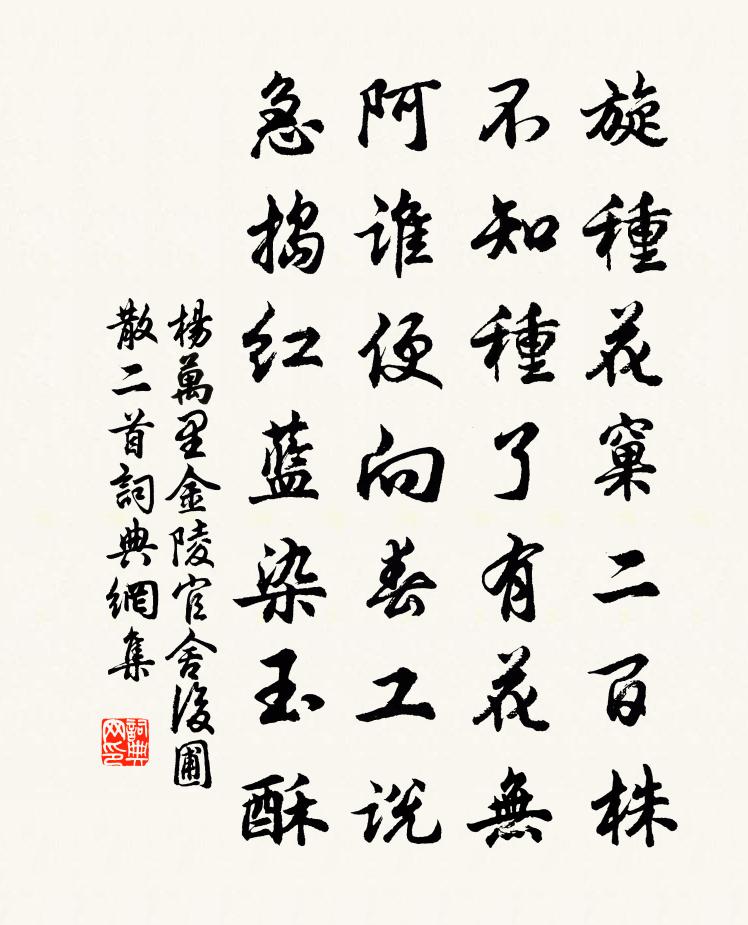 旋種花窠二百株
不知種了有花無
阿谁便向春工説
急搗红藍染玉酥
楊萬里金陵官舍後圃
散二首詞典網集
詞典网印